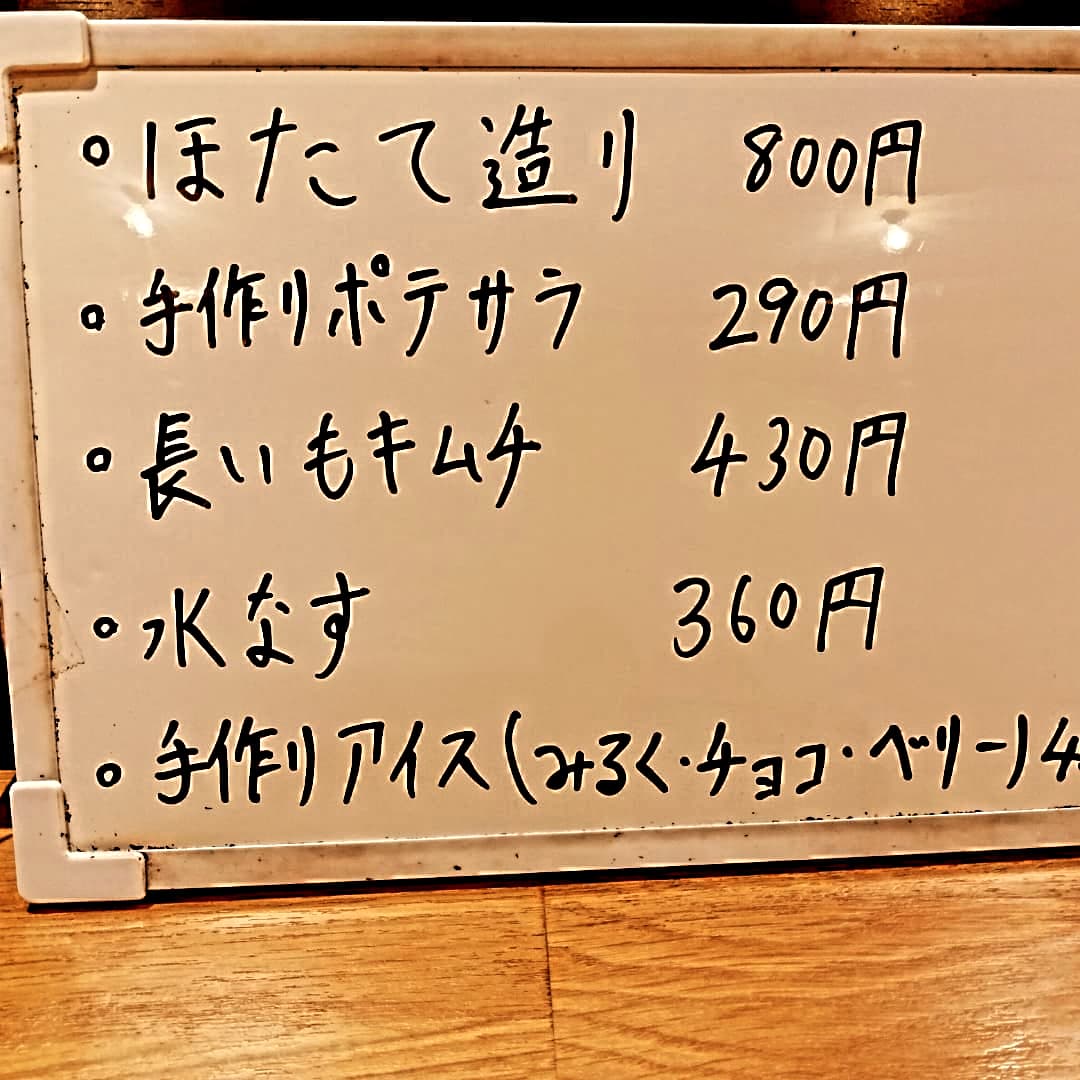 。ほたて造り 800円
。手作りポテサラ 290円
。長いもキムチ 430円
。水なす 360円
。手作りアイス(みるく・チョコ・ベリー) 4